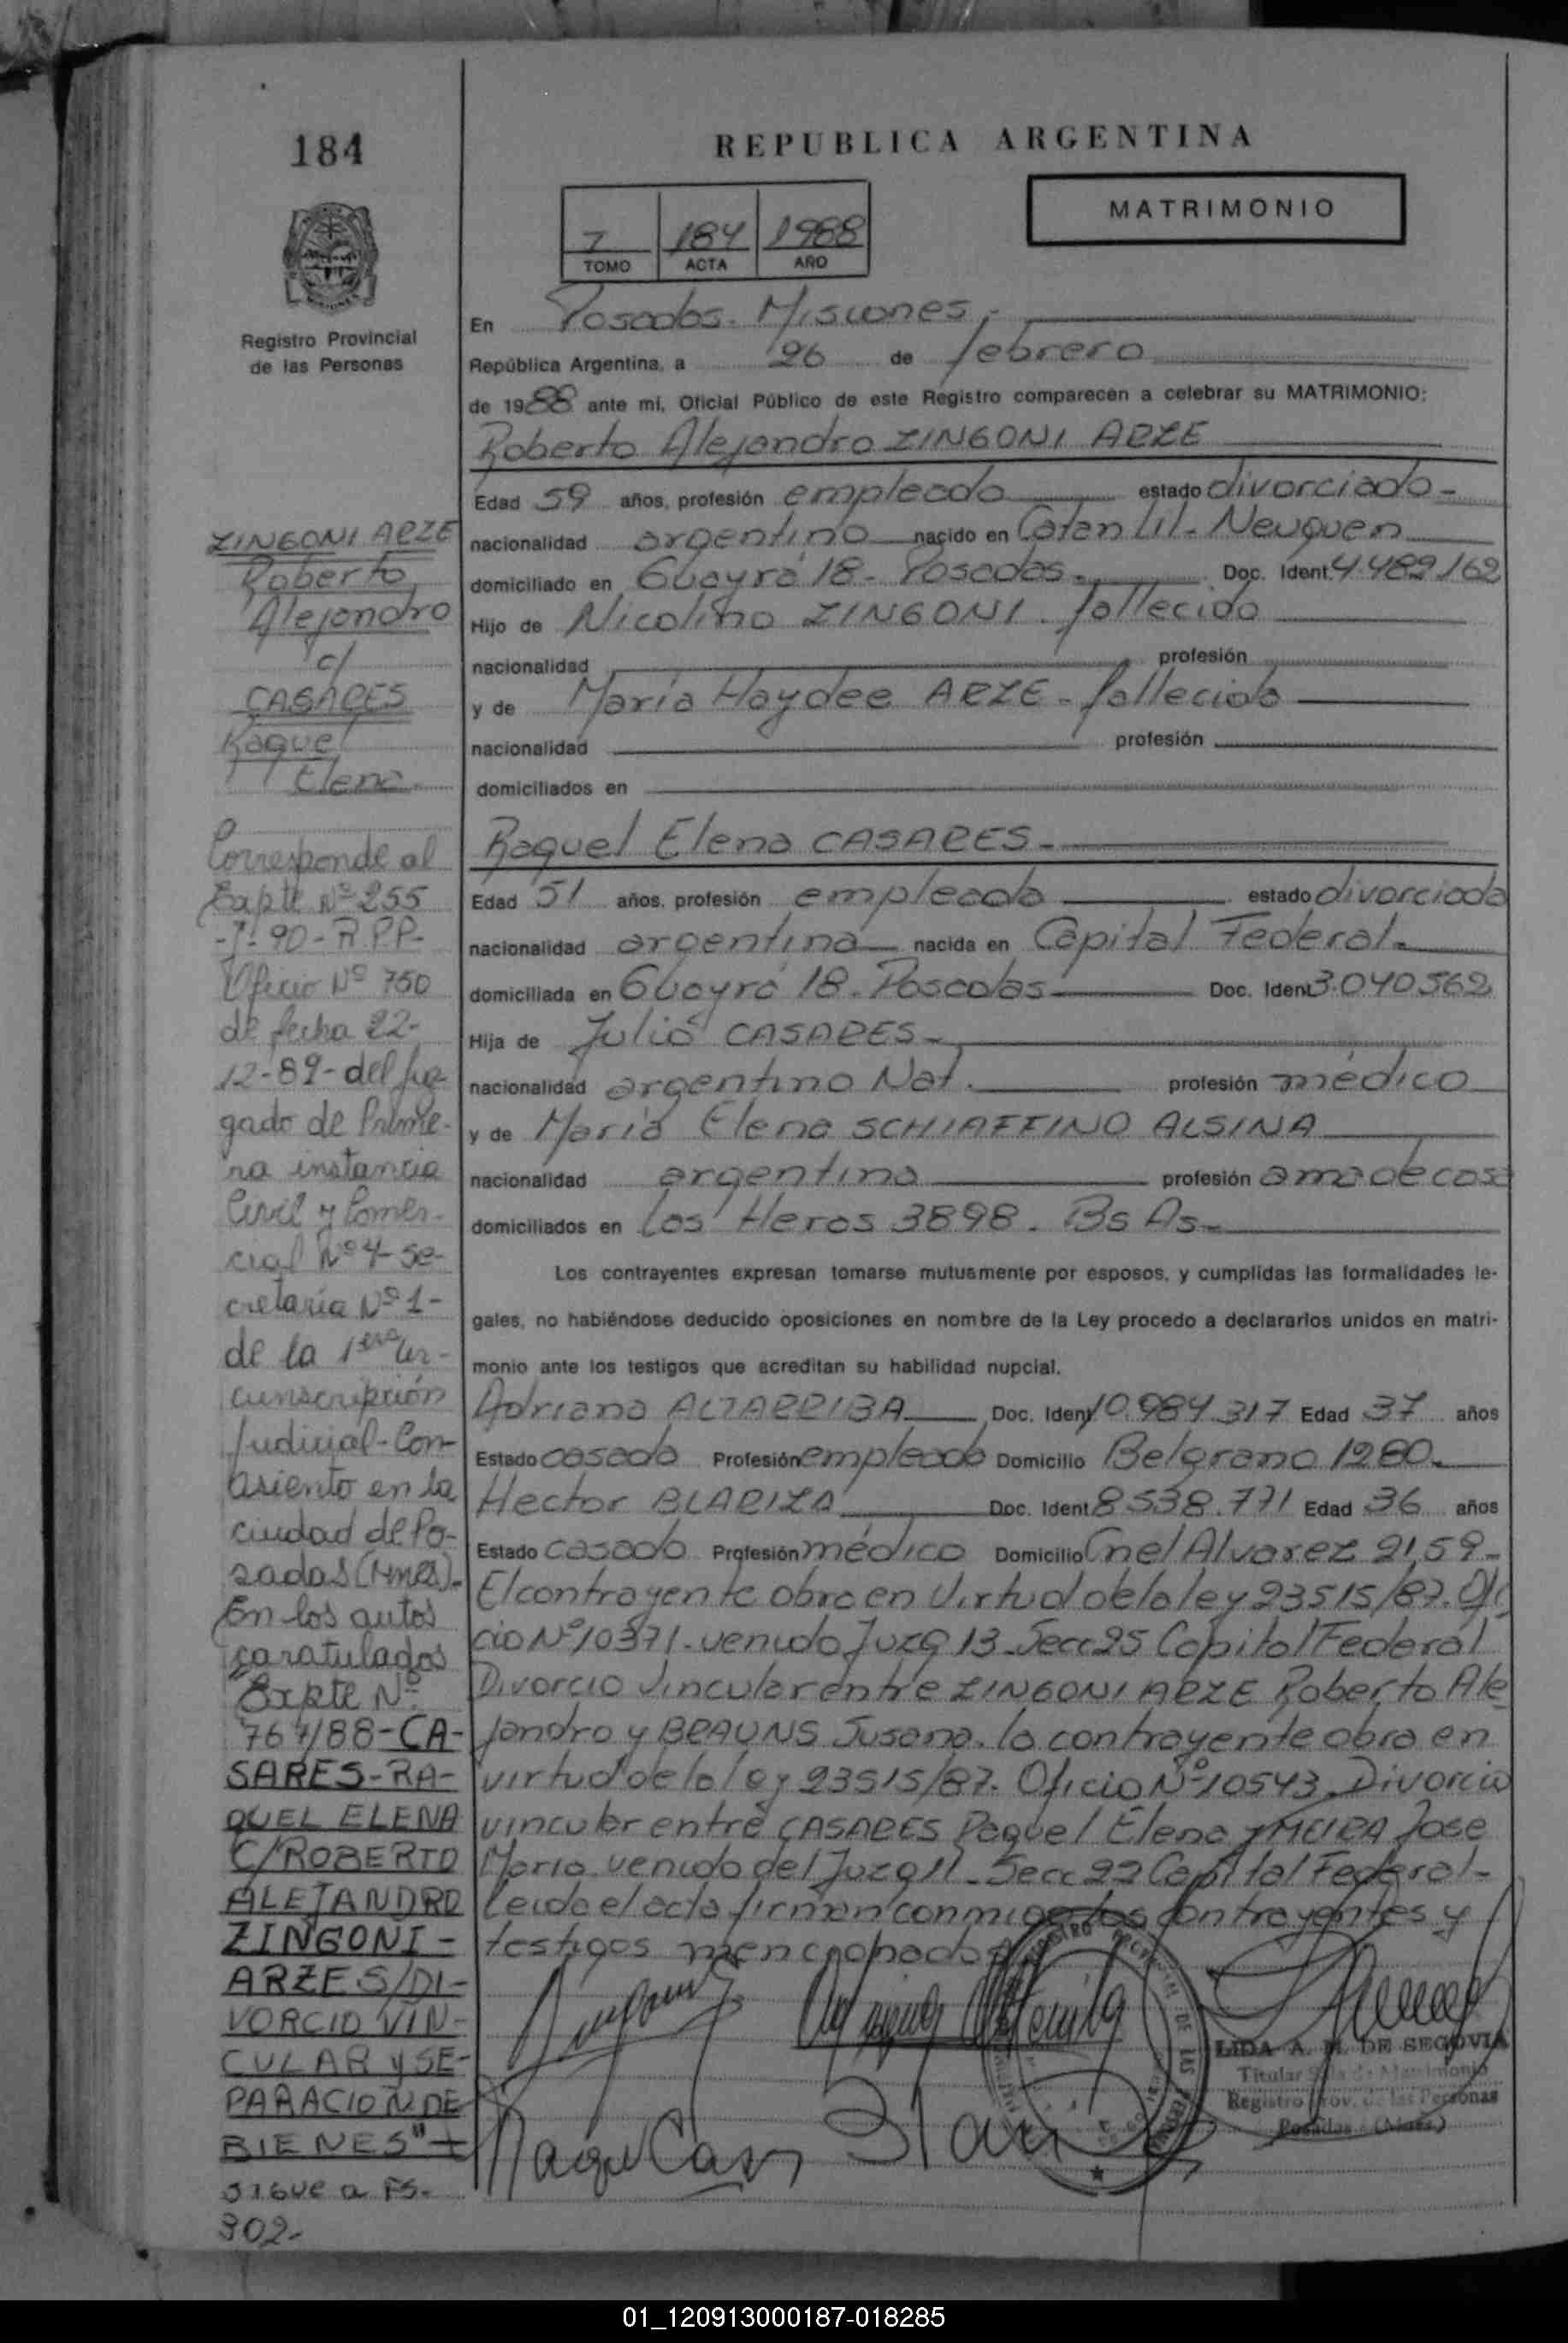 184
REPUBLICA ARGENTINA
MATRIMONIO
7 184 1988
TOMO ACTA AÑO
Registro Provincial
de las Personas
En Posadas. Misiones.
República Argentina, a 26 de febrero
de 1988 ante mí, Oficial Público de este Registro comparecen a celebrar su MATRIMONIO:
Roberto Alejandro ZINGONI ARZE
Edad 59 años, profesión empleado estado divorciado-
nacionalidad argentino nacido en Catan Lil- Neuquen
domiciliado en Guayrá 18- Posadas- Doc. Ident. 4.489.162
Hijo de Nicolino ZINGONI. fallecido
nacionalidad profesión
y de María Haydee ARZE- fallecida
nacionalidad profesión
domiciliados en
Raquel Elena CASARES-
Edad 51 años, profesión empleada estado divorciada
nacionalidad argentina nacida en Capital Federal-
domiciliada en Guayrá 18- Posadas Doc. Ident 3.040.562
Hija de Julio CASARES-
nacionalidad argentino Nat. profesión médico
y de María Elena SCHIAFFINO ALSINA
nacionalidad argentina profesión ama de casa
domiciliados en Los Heros 3898. Bs As-
Los contrayentes expresan tomarse mutuamente por esposos, y cumplidas las formalidades le-
gales, no habiéndose deducido oposiciones en nombre de la Ley procedo a declararlos unidos en matri-
monio ante los testigos que acreditan su habilidad nupcial.
Adriana ALTARRIBA Doc. Ident 10.984.317 Edad 37 años
Estado casada Profesión empleada Domicilio Belgrano 1280-
Hector BLARIZA Doc. Ident 8538.771 Edad 36 años
Estado casado Profesión médico Domicilio Cnel Alvarez 2159-
El contrayente obra en virtud de la ley 23515/87. Ofi
cio Nº 10371. venido Juzg 13- Secc 25 Capital Federal
Divorcio Vincular entre ZINGONI ARZE Roberto Ale
jandro y BRAUNS Susana. la contrayente obra en
virtud de la ley 23515/87. Oficio Nº 10543. Divorcio
vincular entre CASARES Raquel Elena y MEIRA Jose
Maria venido del Juzg 11- Secc 22 Capital Federal-
Leida el acta firman conmigo los contrayentes y
testigos mencionados
LIDA A. M. DE SEGOVIA
Titular Sala de Matrimonio
Registro Prov. de las Personas
Posadas - (Mnes.)
ZINGONI ARZE
Roberto
Alejandro
c/
CASARES
Raquel
Elena
Corresponde al
Expte Nº 255
-J- 90- R.P.P-
Oficio Nº 750
de fecha 22-
12-89- del Juz-
gado de Prime-
ra instancia
Civil y Comer-
cial Nº 4- Se-
cretaría Nº 1-
de la 1era Cir-
cunscripción
Judicial- Con
asiento en la
ciudad de Po-
sadas (Mnes).
En los autos
caratulados
"Expte Nº
767/88- CA-
SARES- RA-
QUEL ELENA
C/ ROBERTO
ALEJANDRO
ZINGONI-
ARZE S/DI-
VORCIO VIN-
CULAR y SE-
PARACION DE
BIENES"
SIGUE a FS.
302-
01_120913000187-018285